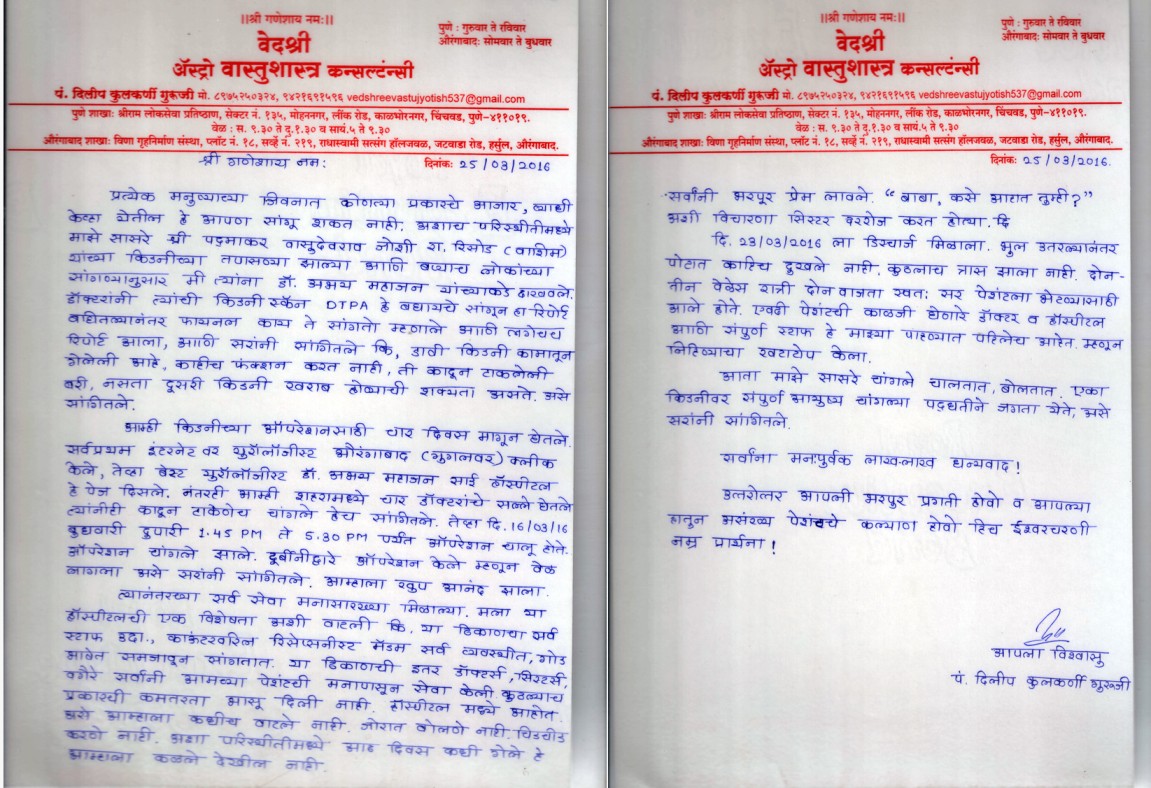 ॥श्री गणेशाय नमः॥
पुणे : गुरुवार ते रविवार
औरंगाबाद: सोमवार ते बुधवार
वेदश्री
ॲस्ट्रो वास्तुशास्त्र कन्सल्टंन्सी
पं. दिलीप कुलकर्णी गुरूजी मो. ८९७५२५०३२४, ९४२१६९१५९६ vedshreevastujyotish537@gmail.com
पुणे शाखा: श्रीराम लोकसेवा प्रतिष्ठाण, सेक्टर नं. १३५, मोहननगर, लींक रोड, काळभोरनगर, चिंचवड, पुणे-४११०१९.
वेळ : स. ९.३० ते दु.१.३० व सायं.५ ते ९.३०
औरंगाबाद शाखा: विणा गृहनिर्माण संस्था, प्लॉट नं. १८, सर्व्हे नं. २१९, राधास्वामी सत्संग हॉलजवळ, जटवाडा रोड, हर्सुल, औरंगाबाद.
श्री गणेशाय नम:
दिनांक: 25/03/2016
प्रत्येक मनुष्याच्या जिवनात कोणत्या प्रकारचे आजार, व्याधी
केव्हा येतील हे आपण सांगू शकत नाही. अशाच परिस्थीतीमध्ये
माझे सासरे श्री पद्माकर वासुदेवराव जोशी रा. रिसोड (वाशिम)
यांच्या किडनीच्या तपासण्या झाल्या आणि बऱ्याच लोकांच्या
सांगण्यानुसार मी त्यांना डॉ. अभय महाजन यांच्याकडे दाखवले.
डॉक्टरांनी त्यांची किडनी स्कॅन DTPA हे बघायचे सांगून हा रिपोर्ट
बघितल्यानंतर फायनल काय ते सांगतो म्हणाले आणि लगेचच
रिपोर्ट आला, आणि सरांनी सांगितले कि, डावी किडनी कामातून
गेलेली आहे, काहीच फंक्शन करत नाही, ती काढून टाकलेली
बरी, नसता दुसरी किडनी खराब होण्याची शक्यता असते. असे
सांगितले.
आम्ही किडनीच्या ऑपरेशनसाठी चार दिवस मागून घेतले.
सर्वप्रथम इंटरनेट वर युरॉलॉजीस्ट औरंगाबाद (गुगलवर) क्लीक
केले, तेव्हा बेस्ट युरॉलॉजीस्ट डॉ. अभय महाजन साई हॉस्पीटल
हे पेज दिसले. नंतरही आम्ही शहरामध्ये चार डॉक्टरांचे सल्ले घेतले
त्यांनीही काढून टाकणेच चांगले हेच सांगितले. तेव्हा दि. 16/03/16
बुधवारी दुपारी 1.45 PM ते 5.30 PM पर्यंत ऑपरेशन चालू होते.
ऑपरेशन चांगले झाले. दूर्बीनीद्वारे ऑपरेशन केले म्हणून वेळ
लागला असे सरांनी सांगितले. आम्हाला खुप आनंद झाला.
त्यानंतरच्या सर्व सेवा मनासारख्या मिळाल्या. मला या
हॉस्पीटलची एक विशेषता अशी वाटली कि, या ठिकाणचा सर्व
स्टाफ उदा., काऊंटरवरिल रिसेप्सनीस्ट मॅडम सर्व व्यवस्थीत, गोड
भाषेत समजावून सांगतात. या ठिकाणची इतर डॉक्टर्स, सिस्टर्स,
वगैरे सर्वांनी आमच्या पेशंटची मनापासून सेवा केली कुठल्याच
प्रकारची कमतरता भासू दिली नाही. हॉस्पीटल मध्ये आहोत
असे आम्हाला कधीच वाटले नाही. जोरात बोलणे नाही. चिडचीड
करणे नाही. अशा परिस्थीतीमध्ये आठ दिवस कधी गेले हे
आम्हाला कळले देखील नाही.
॥श्री गणेशाय नमः॥
पुणे : गुरुवार ते रविवार
औरंगाबाद: सोमवार ते बुधवार
वेदश्री
ॲस्ट्रो वास्तुशास्त्र कन्सल्टंन्सी
पं. दिलीप कुलकर्णी गुरूजी मो. ८९७५२५०३२४, ९४२१६९१५९६ vedshreevastujyotish537@gmail.com
पुणे शाखा: श्रीराम लोकसेवा प्रतिष्ठाण, सेक्टर नं. १३५, मोहननगर, लींक रोड, काळभोरनगर, चिंचवड, पुणे-४११०१९.
वेळ : स. ९.३० ते दु.१.३० व सायं.५ ते ९.३०
औरंगाबाद शाखा: विणा गृहनिर्माण संस्था, प्लॉट नं. १८, सर्व्हे नं. २१९, राधास्वामी सत्संग हॉलजवळ, जटवाडा रोड, हर्सुल, औरंगाबाद.
दिनांक: 25/03/2016.
सर्वांनी भरपूर प्रेम लावले. “बाबा, कसे आहात तुम्ही?”
अशी विचारणा सिस्टर दररोज करत होत्या. दि
दि. 23/03/2016 ला डिस्चार्ज मिळाला. भुल उतरल्यानंतर
पोटात काहिच दुखले नाही. कुठलाच त्रास झाला नाही. दोन-
तीन वेळेस रात्री दोन वाजता स्वत: सर पेशंटला भेटण्यासाठी
आले होते. एवढी पेशंटची काळजी घेणारे डॉक्टर व हॉस्पीटल
आणि संपुर्ण स्टाफ हे माझ्या पाहण्यात पहिलेच आहेत. म्हणून
लिहिण्याचा खटाटोप केला.
आता माझे सासरे चांगले चालतात, बोलतात. एका
किडनीवर संपुर्ण आयुष्य चांगल्या पद्धतीने जगता येते, असे
सरांनी सांगितले.
सर्वांना मन:पुर्वक लाख-लाख धन्यवाद!
उत्तरोत्तर आपली भरपुर प्रगती होवो व आपल्या
हातुन असंख्य पेशंटचे कल्याण होवो हिच ईश्वरचरणी
नम्र प्रार्थना!
आपला विश्वासु
पं. दिलीप कुलकर्णी गुरूजी